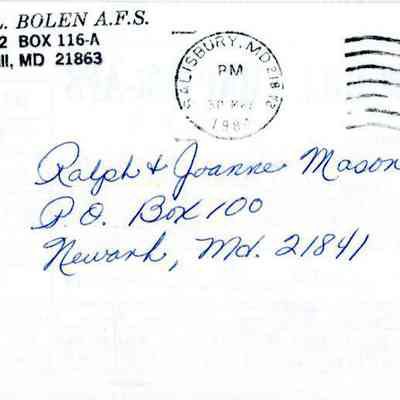 L. BOLEN A.F.S.
2 BOX 116-A
ill, MD 21863
SALISBURY, MD 218
PM
30
198
Ralph & Joanne Mason
P.O. Box 100
Newark, Md. 21841